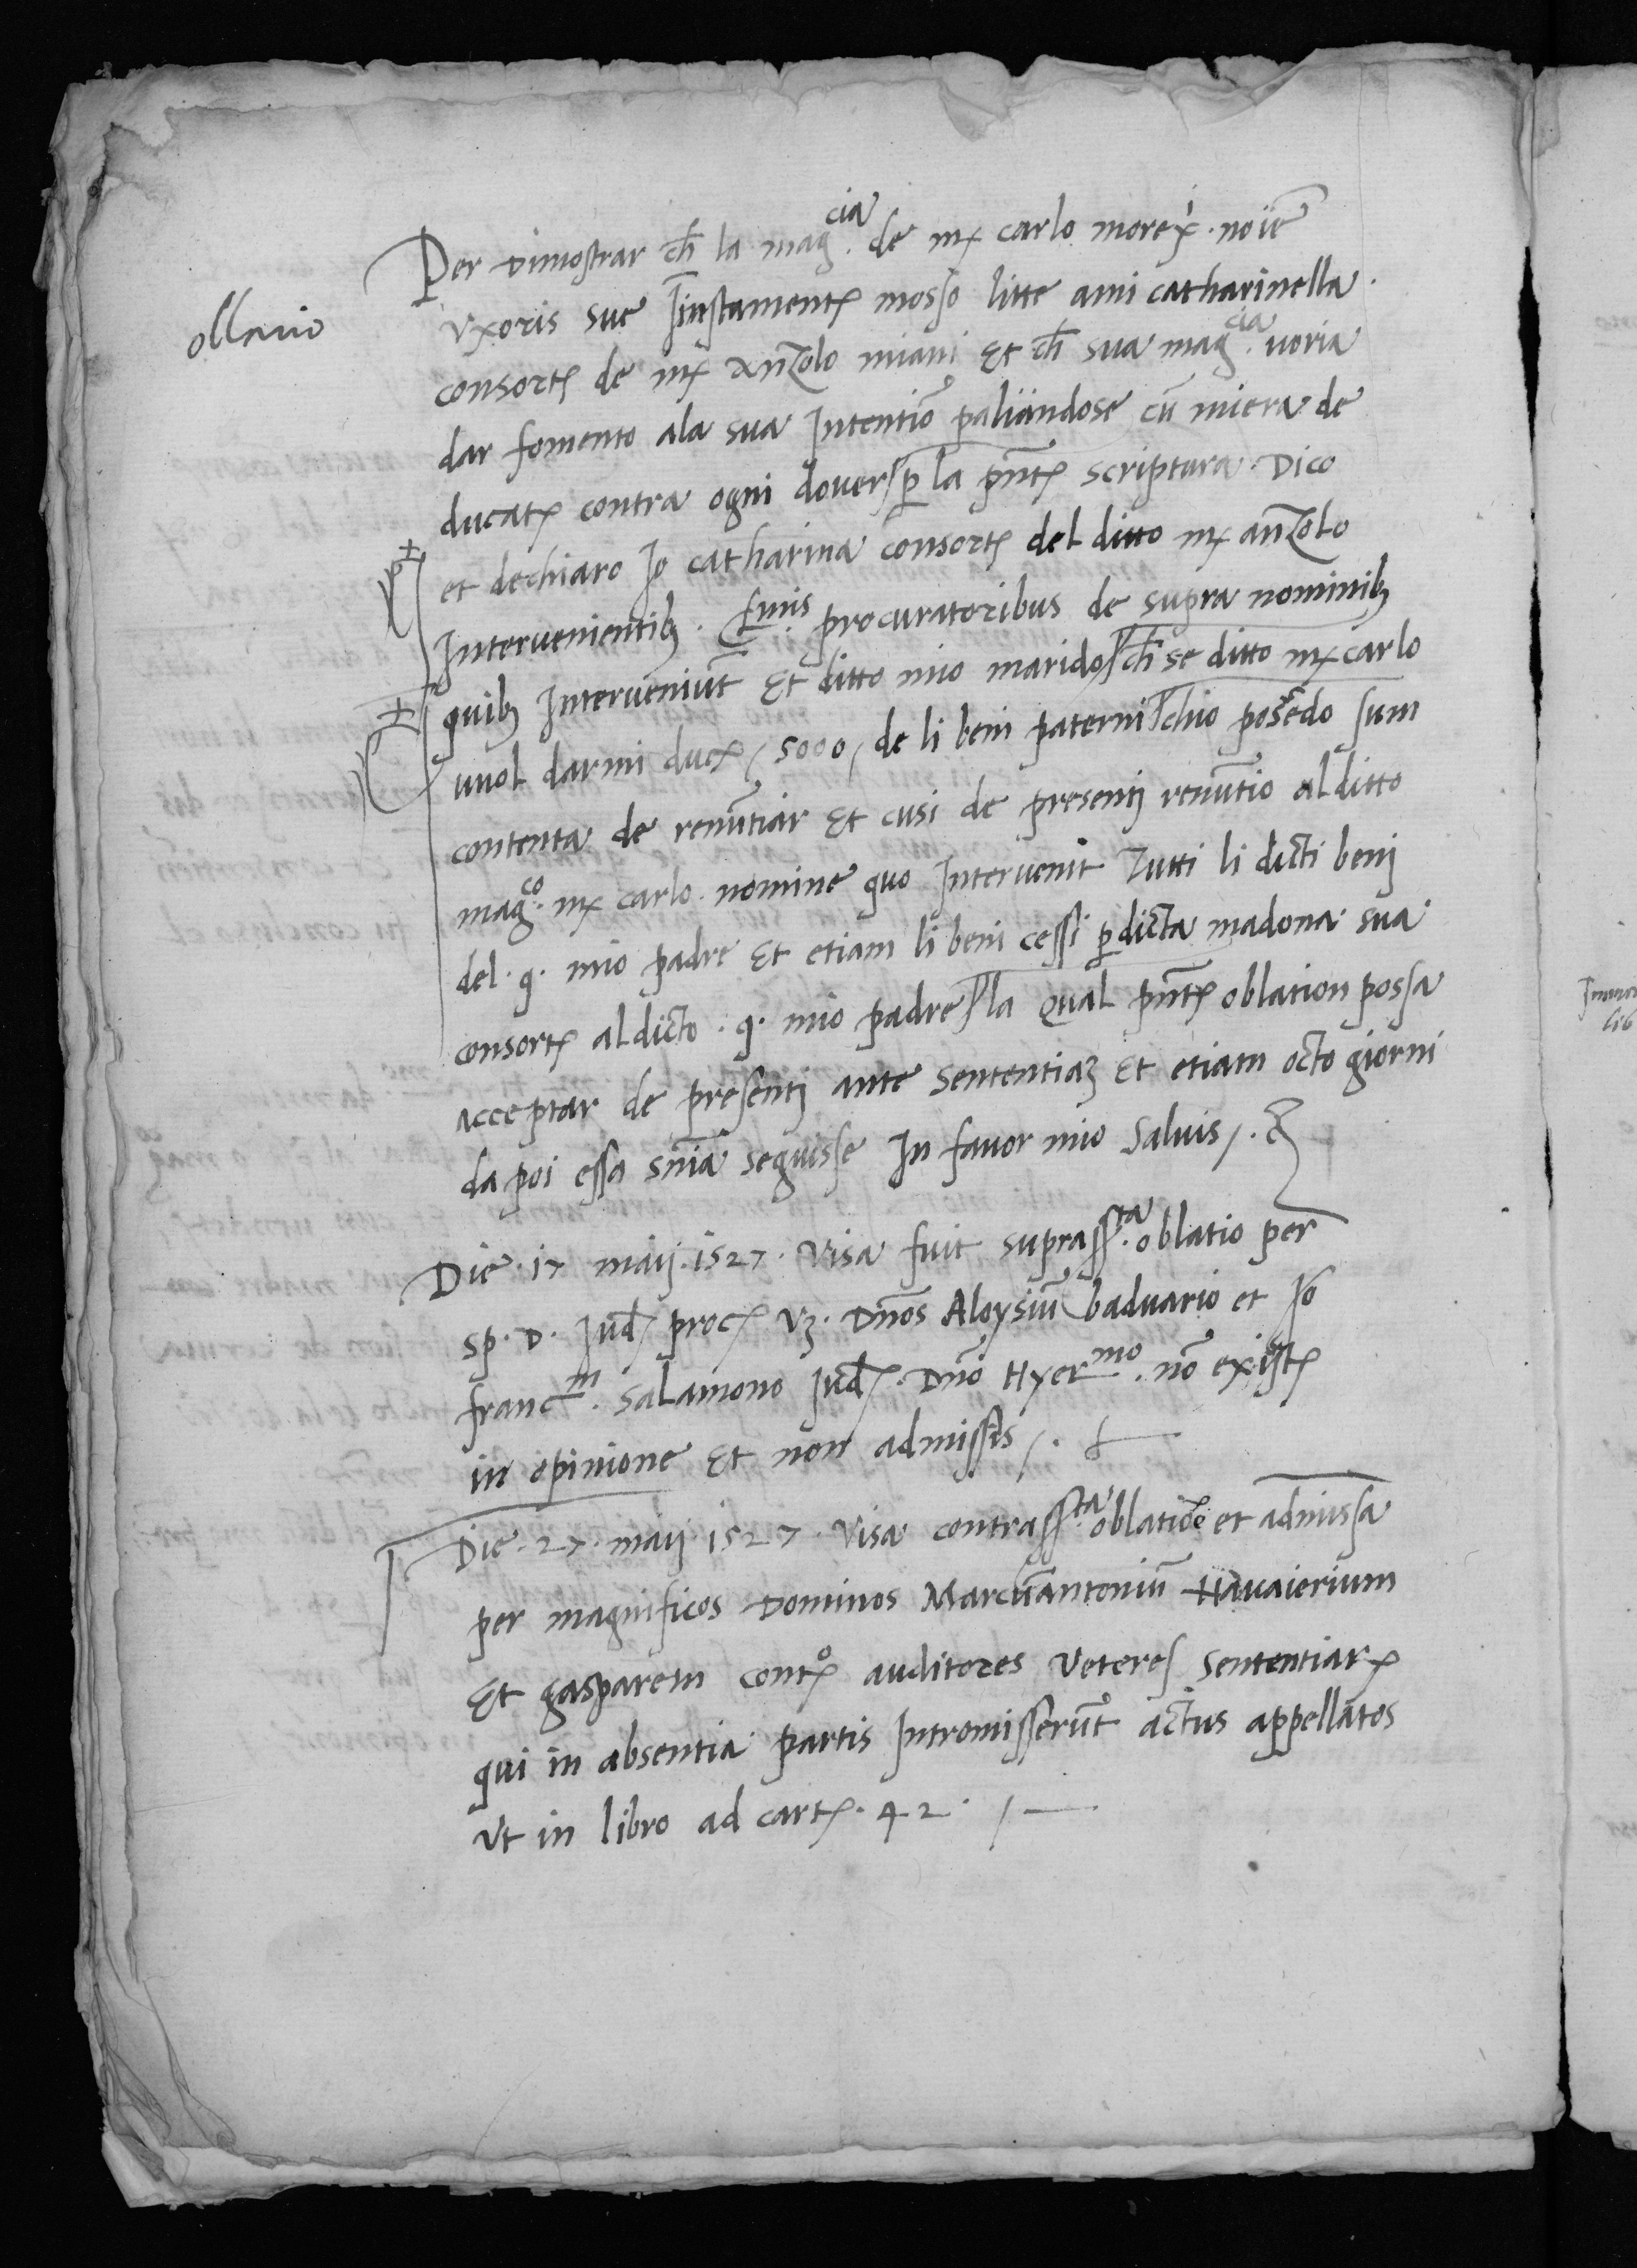 ollario
Per dimostrar ch̄ la mag.cia de mx carlo morex.ⁱ noīe
vxoris sue Iniustamente mosso litte ami catharinella.
consorte de mx Anzolo miani Et ch̄ sua mag.cia voria
dar fomento ala sua Intentiō paliandose cū miera de
ducatj contra ogni dover p̱ la pn̄te scriptura Dico
et dechiaro Io catharina consorte del ditto mx anzolo
Intervenientib3. procuratoribus de supra nominib3
quib3 Interveniūt Et ditto mio marido ch̄ se ditto mx carlo
vuol darmi ducj / 5000 / de li beni paterni chio possedo sum
contenta de renūtiar Et cusi de presentj renūtio al ditto
mag.co mx carlo. nomine quo Intervenit Tutti li dicti benj
del .q. mio padre Et etiam li beni cessi p̱ dicta madona sua
consorte al dicto .q. mio padre la qual pn̄te oblation possa
acceptar de presentj ante Sententia3 Et etiam octo giorni
da poi essa sn̄ia seguisse In favor mio Salvis /.
Die .17 maij. 1527. Visa fuit suprass.ta oblatio per
Sp. D. Iud. proc. v3. Dn̄os Aloysiū baduario et Io
franc.m Salamono Iud. Dn̄o Hyer.mo nō existe
in opinione Et non admissis /.
Die .27. maij. 1527. Visa contrass.ta oblatiōe et admissa
per magnificos Dominos Marcūantoniū Navaierium
Et gasparem cont.o auditores Veteres Sententiarx
qui in absentia partis Intromisserūt actus appellatos
Vt in libro ad cart. 42. /